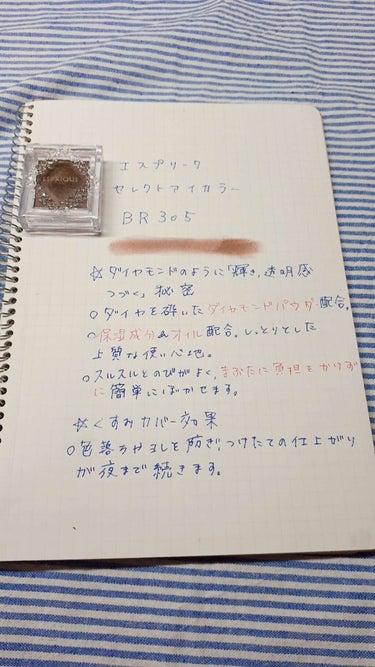 ESPRIQUE
エスプリーク
セレクトアイカラー
BR305
☆ダイヤモンドのように「輝き、透明感
つづく」秘密
○ダイヤを砕いたダイヤモンドパウダー配合。
○保湿成分&オイル配合。しっとりとした
上質な使い心地。
○スルスルとのびがよく、まぶたに負担をかけず
に簡単にぼかせます。
☆くすみカバー効果
○色落ちやヨレを防ぎ、つけたての仕上がり
が夜まで続きます。